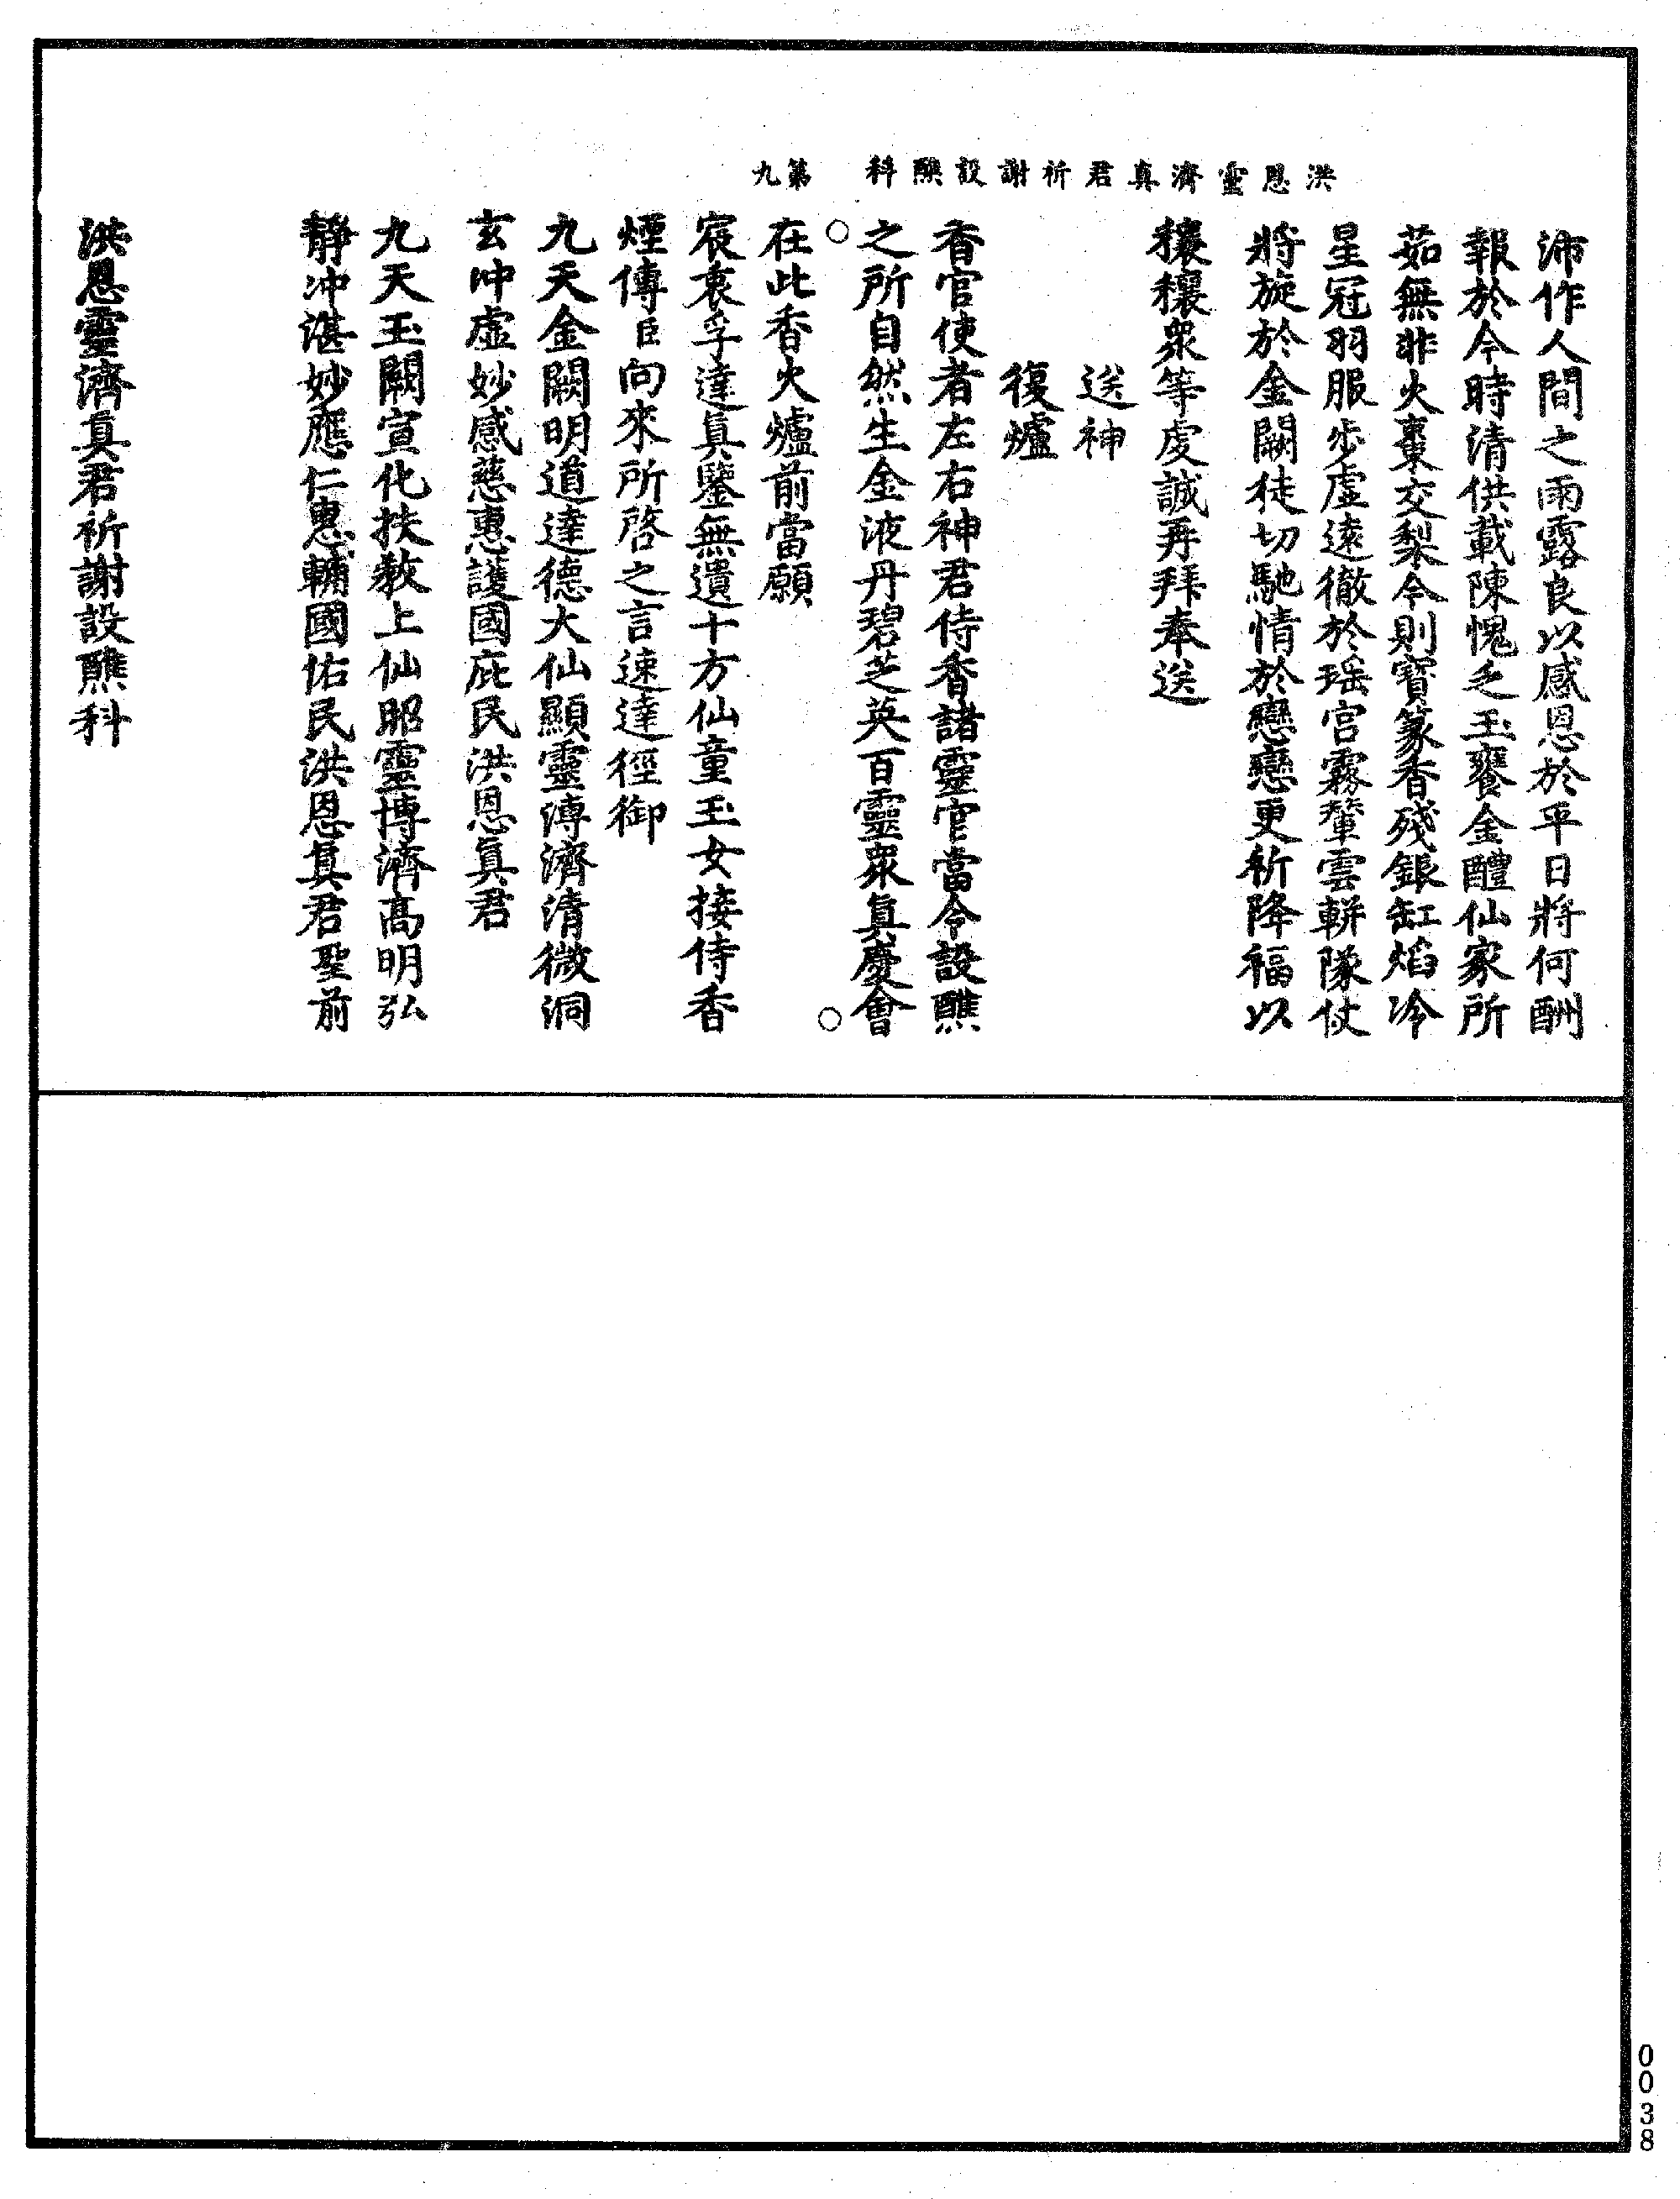 洪恩靈濟真君祈謝設醮科　第九
沛作人間之雨露良以感恩於平日將何酬
報於今時清供載陳愧乏玉饔金醴仙家所
茹無非火棗交梨今則寶篆香殘銀缸焰冷
星冠羽服步虛遠徹於瑶宮霧輦雲軿隊仗
將旋於金闕徒切馳情於戀戀更祈降福以
穰穰衆等虔誠再拜奉送
送神
復爐
香官使者左右神君侍香諸靈官當令設醮
之所自然生金液丹碧芝英百靈衆真慶會
在此香火爐前當願
宸衷孚達真鑒無遺十方仙童玉女接侍香
煙傳臣向來所啓之言速達徑御
九天金闕明道達德大仙顯靈溥濟清微洞
玄冲虛妙感慈惠護國庇民洪恩真君
九天玉闕宣化扶教上仙昭靈博濟高明弘
靜冲湛妙應仁惠輔國佑民洪恩真君聖前
洪恩靈濟真君祈謝設醮科
0038